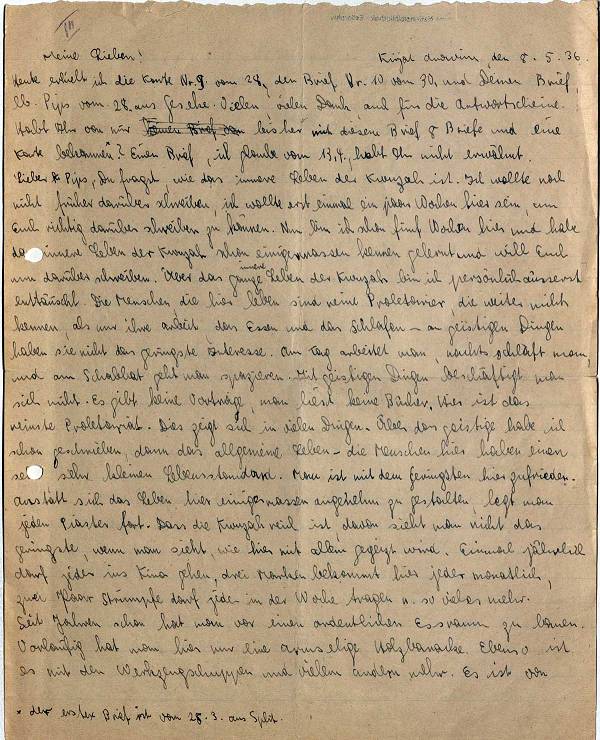 Meine Lieben!
Kirjat Anavim, den 8.5.36.
Heute erhielt ich die Karte Nr. 9 vom 28, den Brief Nr. 10 vom 30, und Deinen Brief,
lb. Pips vom 28. aus Geseke. Vielen, vielen Dank auch für die Antwortscheine.
Habt Ihr von mir bisher mit diesem Brief 8 Briefe und eine
Karte bekommen*? Einen Brief, ich glaube vom 13.4., habt Ihr nicht erwähnt.
Lieber Pips, Du fragst, wie das innere Leben der Kwuzah ist. Ich wollte noch
nicht früher darüber schreiben, ich wollte erst einmal ein paar Wochen hier sein, um
Euch richtig darüber schreiben zu können. Nun bin ich schon fünf Wochen hier und habe
das innere Leben der Kwuzah schon einigermassen kennen gelernt und will Euch
nun darüber schreiben. Über das ganze innere Leben der Kwuzah bin ich persönlich äusserst
enttäuscht. Die Menschen die hier leben sind reine Proletarier, die weiter nichts
kennen, als nur ihre Arbeit das Essen und das Schlafen – an geistigen Dingen
haben sie nicht das geringste Interesse. Am Tag arbeitet man, nachts schläft man,
und am Schabbat geht man spazieren. Mit geistigen Dingen beschäftigt man
sich nicht. Es gibt keine Vorträge, man liest keine Bücher. Hier ist das
reinste Proletariat. Dies zeigt sich in vielen Dingen. Über das geistige habe ich
schon geschrieben, dann das allgemeine Leben – die Menschen hier haben einen
sehr kleinen Lebensstandard. Man ist mit dem Geringsten hier zufrieden.
Anstatt sich das Leben hier einigermassen angenehm zu gestalten, legt man
jeden Piaster fort. Dass die Kwuzah reich ist, davon sieht man nicht das
geringste, wenn man sieht, wie hier mit allem gegeizt wird. Einmal jährlich
darf jeder ins Kino gehen, drei Marken bekommt hier jeder monatlich,
zwei Paar Strümpfe darf jeder in der Woche tragen u. so vieles mehr.
Seit Jahren schon hat man vor einen ordentlichen Essraum zu bauen.
Vorläufig hat man hier nur eine armselige Holzbaracke. Ebenso ist
es mit den Werkzeugschuppen und vielem andern mehr. Es ist von
* der erste Brief ist vom 28.3. aus Split.